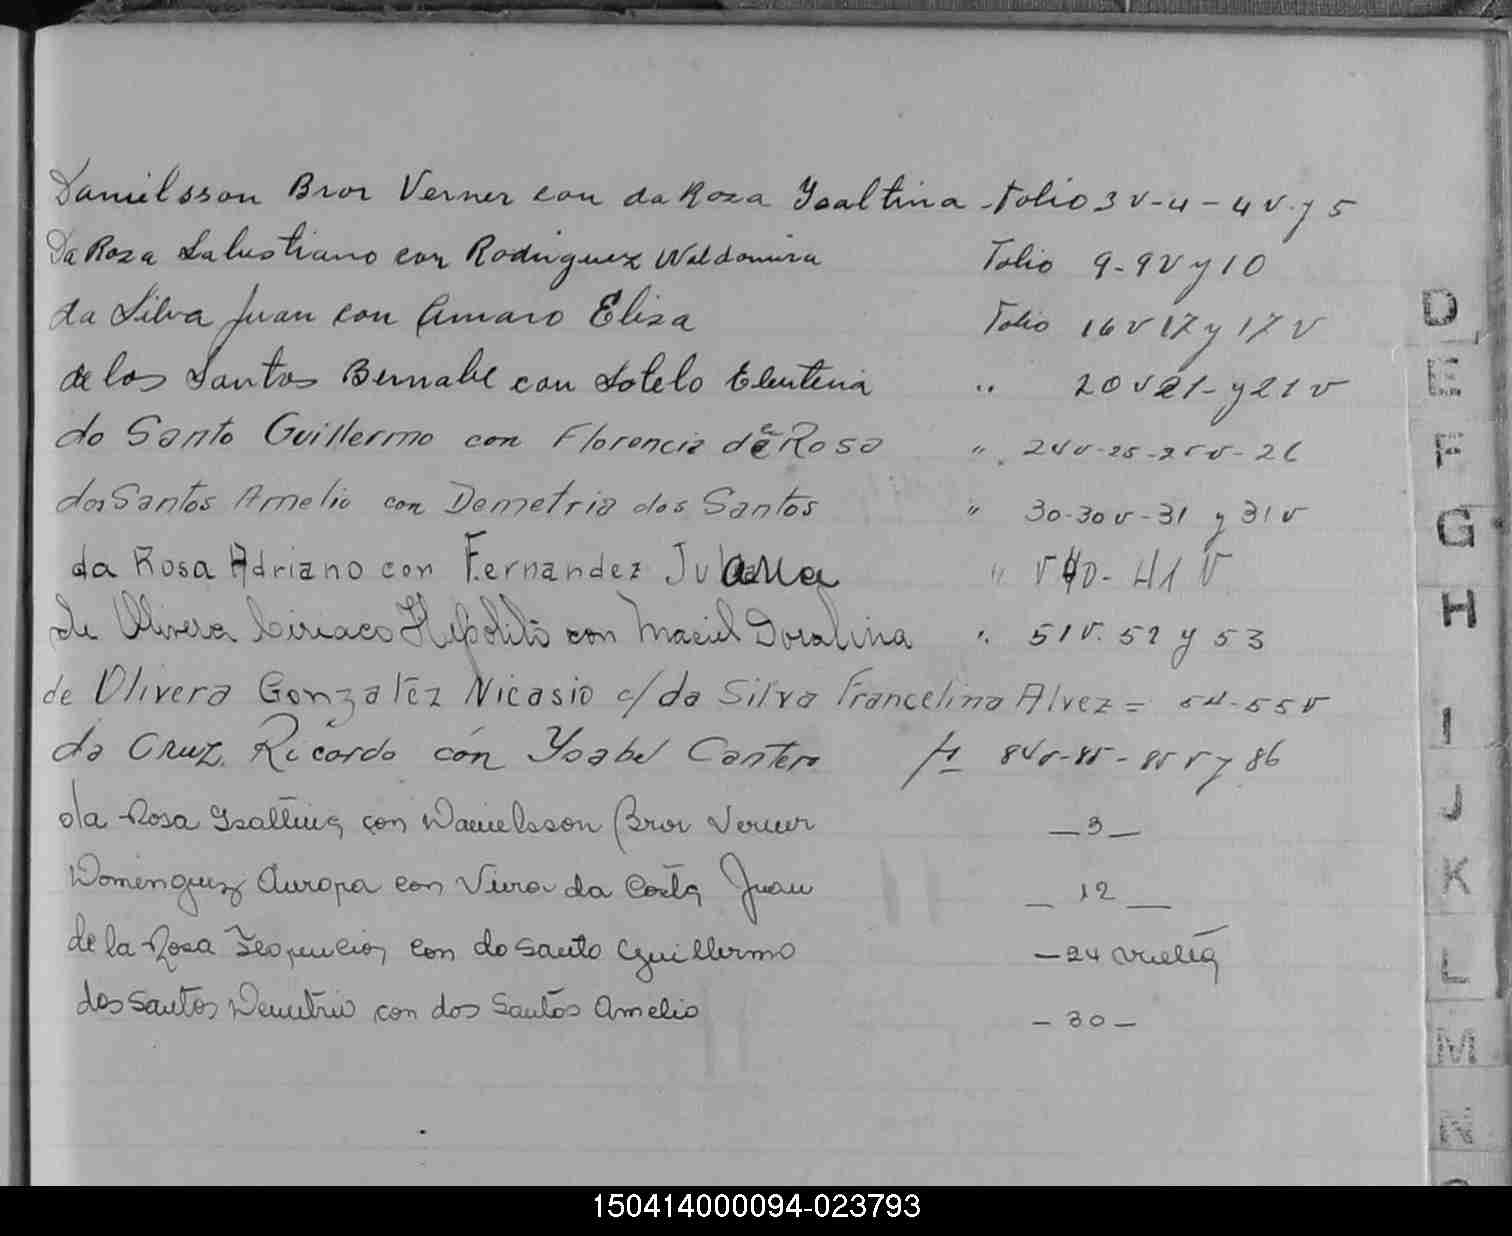 Danielsson Bror Verner con da Roza Ysaltina - Folio 3 v - 4 - 4 v. y 5
Da Roza Salustiano con Rodriguez Waldomira Folio 9 - 9 v y 10
da Silva Juan con Amaro Elisa Folio 16 v 17 y 17 v
de los Santos Bernabe con Sotelo Eleuteria " 20 v 21 - y 21 v
do Santo Guillermo con Florencia de Rosa " 24 v - 25 - 25 v - 26
dos Santos Amelio con Demetria dos Santos " 30 - 30 v - 31 y 31 v
da Rosa Adriano con Fernandez Juliana " v 40 - 41 v
de Olivera Ciriaco Hipolito con Maciel Doralina " 51 v. 52 y 53
de Olivera Gonzalez Nicasio c/ da Silva Francelina Alvez = 54 - 55 v
da Cruz Ricardo con Ysabel Cantero 84 v - 85 - 85 v y 86
da Rosa Isaltina con Danielsson Bror Verner — 3 —
Domenguez Europa con Viera da Costa Juan — 12 —
de la Rosa con do Santo Guillermo — 24 vuelta
dos Santos Demetrio con dos Santos Amelio — 30 —
D
E
F
G
H
I
J
K
L
M
N
150414000094-023793